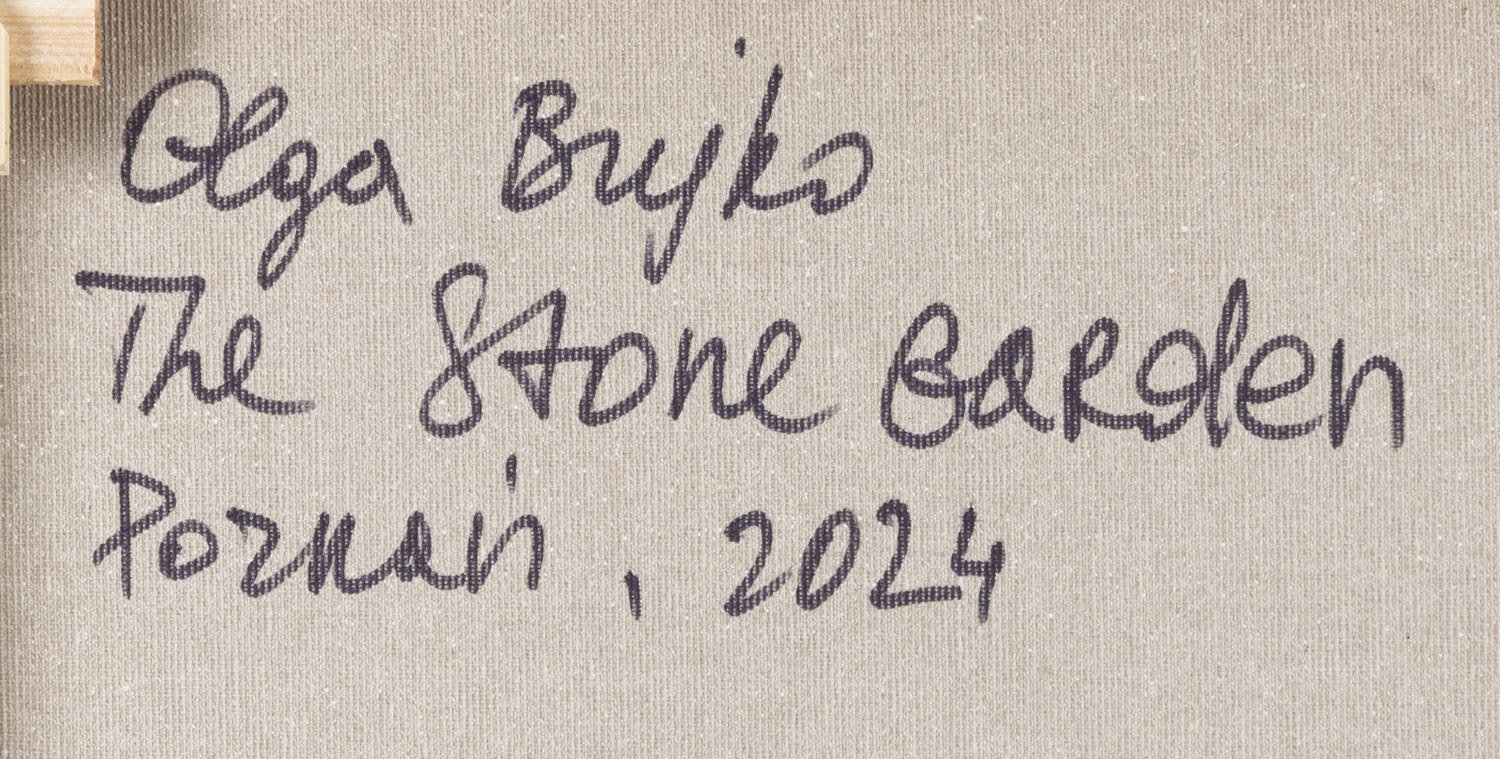 Olga Bujko
The Stone Garden
Poznań, 2024